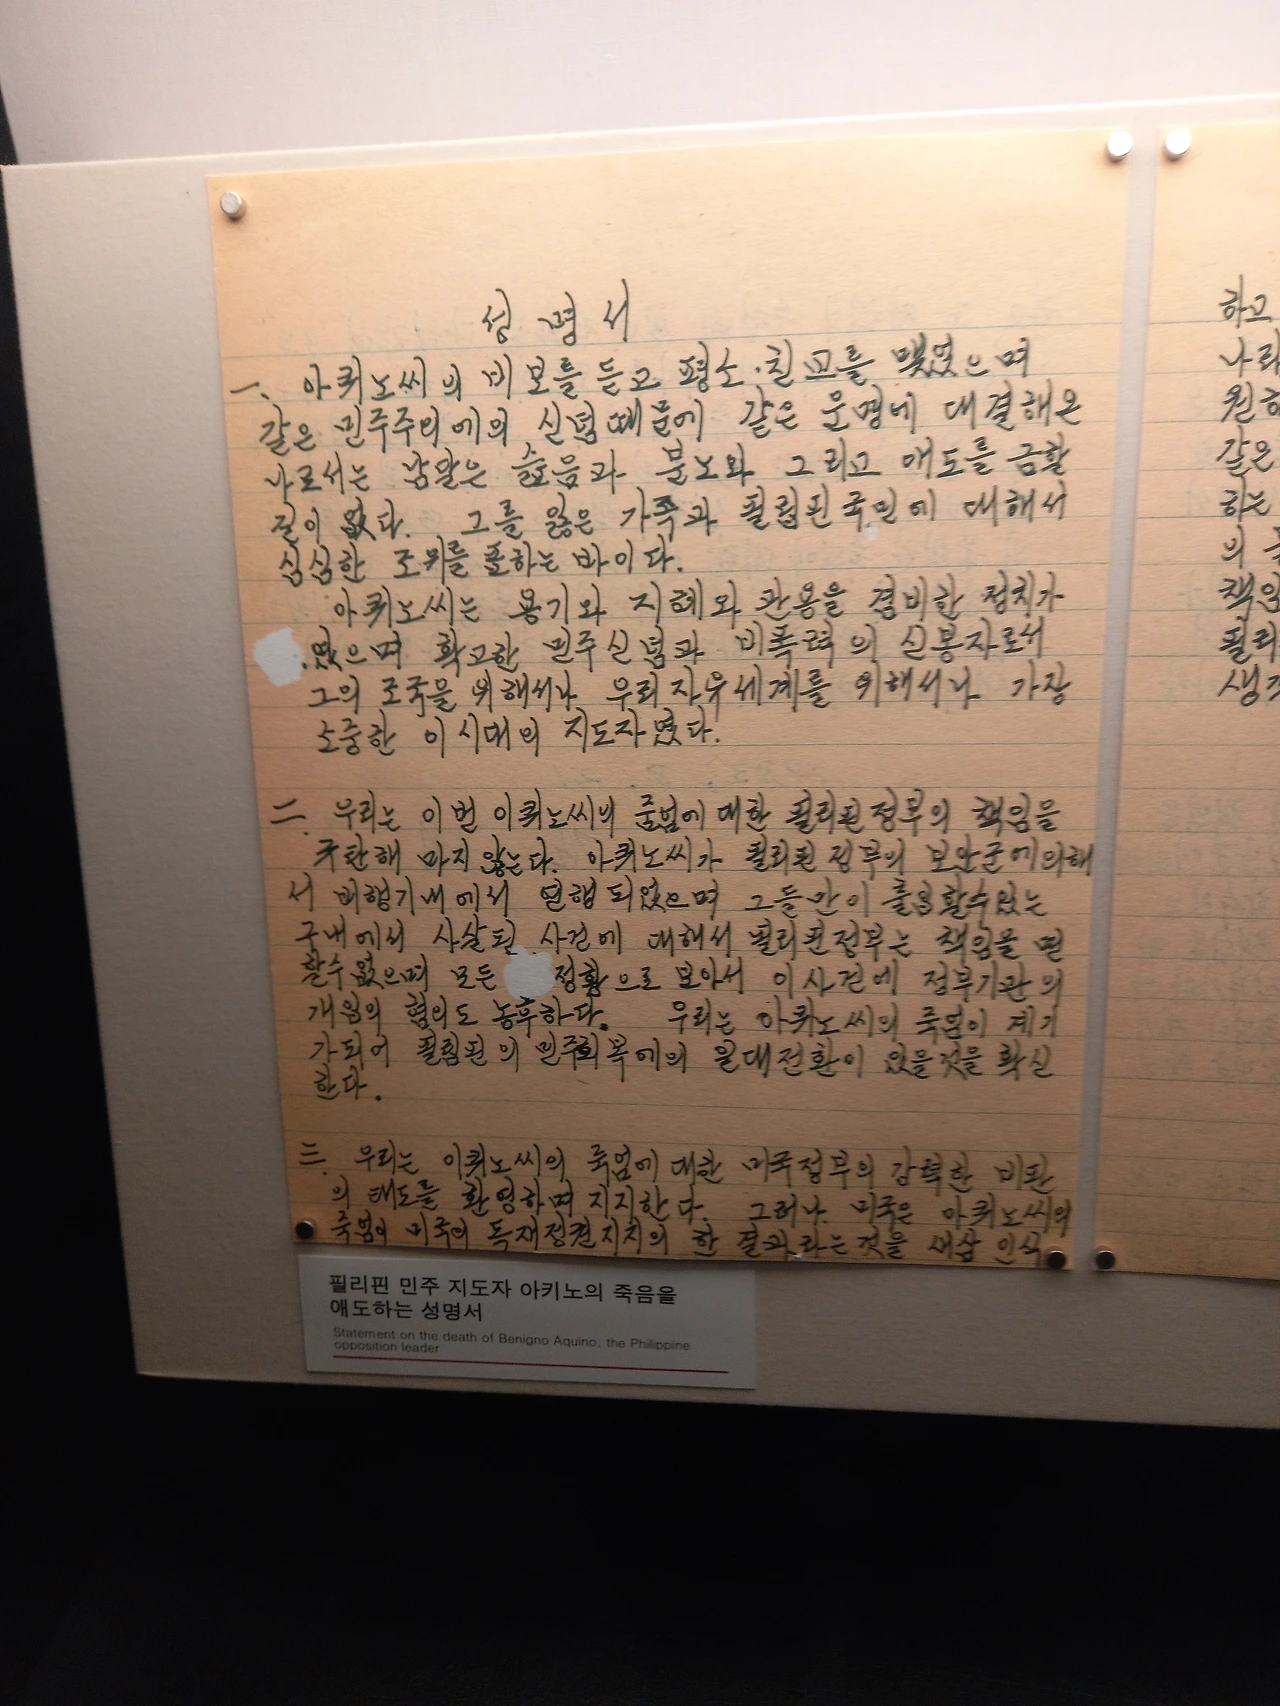 성명서
一. 아퀴노씨의 비보를 듣고 평소·친교를 맺었으며
같은 민주주의에의 신념때문에 같은 운명에 대결해온
나로서는 남말은 슬픔과 분노와 그리고 애도를 금할
길이 없다. 그를 잃은 가족과 필립핀국민에 대해서
심심한 조위를 표하는 바이다.
아퀴노씨는 용기와 지혜와 관용을 겸비한 정치가
였으며 확고한 민주신념과 비폭력의 신봉자로서
그의 조국을 위해서나 우리 자유세계를 위해서나 가장
소중한 이 시대의 지도자였다.
二. 우리는 이번 아퀴노씨의 죽엄에 대한 필리핀정부의 책임을
규탄해 마지 않는다. 아퀴노씨가 필리핀정부의 보안군에의해
서 비행기내에서 연행되었으며 그들만이 출입할수있는
구내에서 사살된 사건에 대해서 필리핀정부는 책임을 면
할수 없으며 모든 정황으로 보아서 이 사건에 정부기관의
개입의 혐의도 농후하다. 우리는 아퀴노씨의 죽엄이 계기
가되어 필립핀의 민주회복에의 일대전환이 있을것을 확신
한다.
三. 우리는 아퀴노씨의 죽엄에 대한 미국정부의 강력한 비판
의 태도를 환영하며 지지한다. 그러나 미국은 아퀴노씨의
죽엄이 미국의 독재정권지지의 한 결과라는것을 새삼 인식
하고
나라
원하
같은
하는
의
책임
필리
생각
필리핀 민주 지도자 아키노의 죽음을
애도하는 성명서
Statement on the death of Benigno Aquino, the Philippine
opposition leader